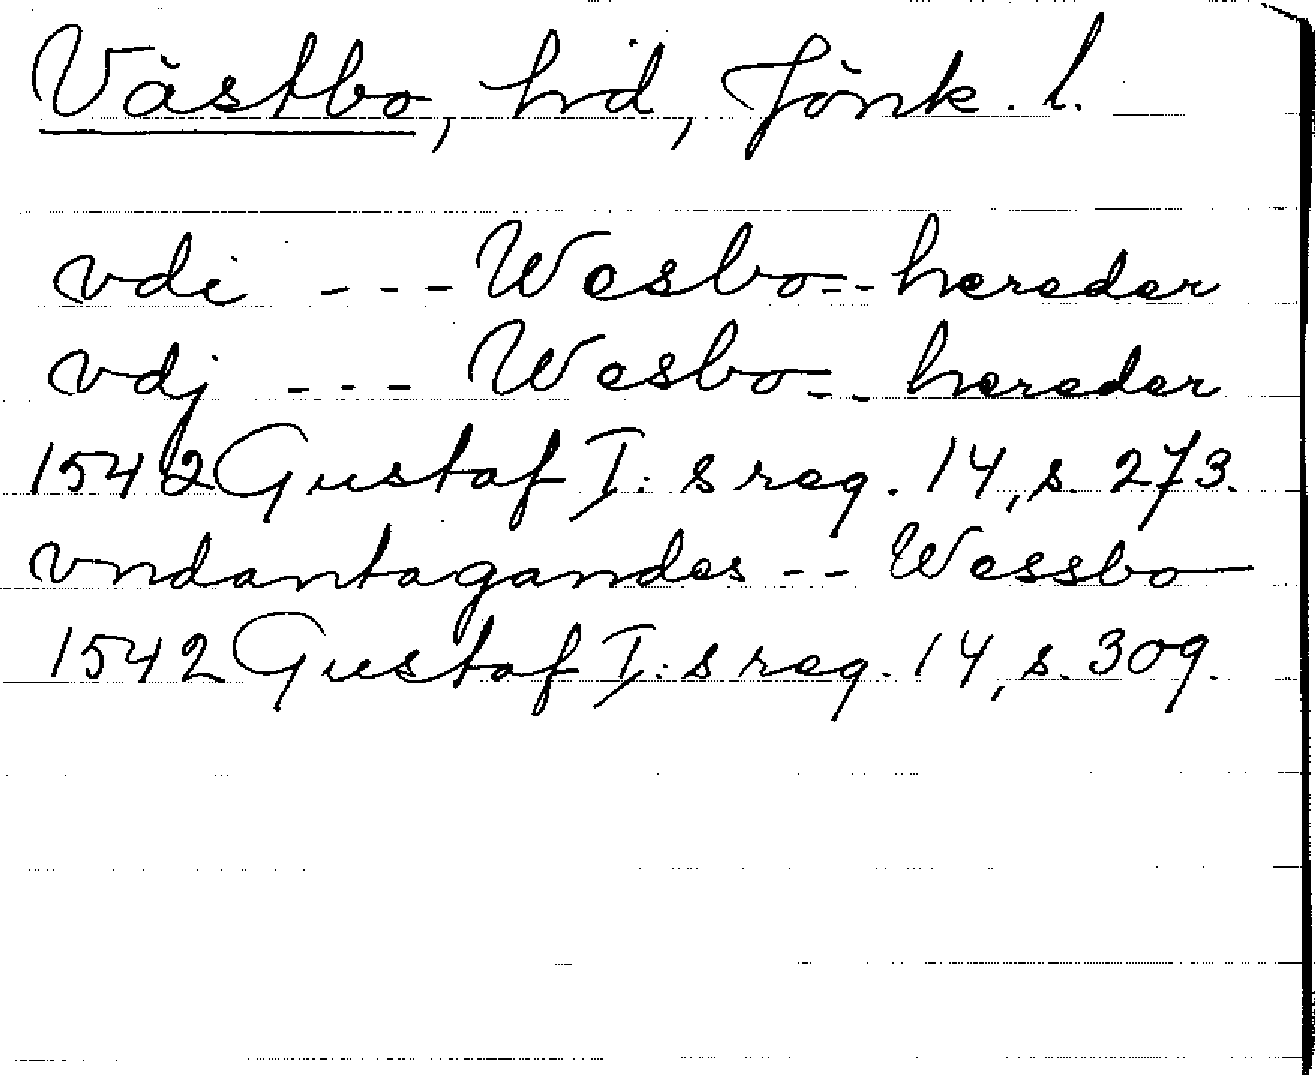 Västbo, hd, Jönk. l.
vdi --- Wesbo -- hereder
vdj --- Wesbo -- hereder
1542 Gustaf I:s reg. 14, s. 273.
vndantagandes -- Wessbo
1542 Gustaf I:s reg. 14, s. 309.